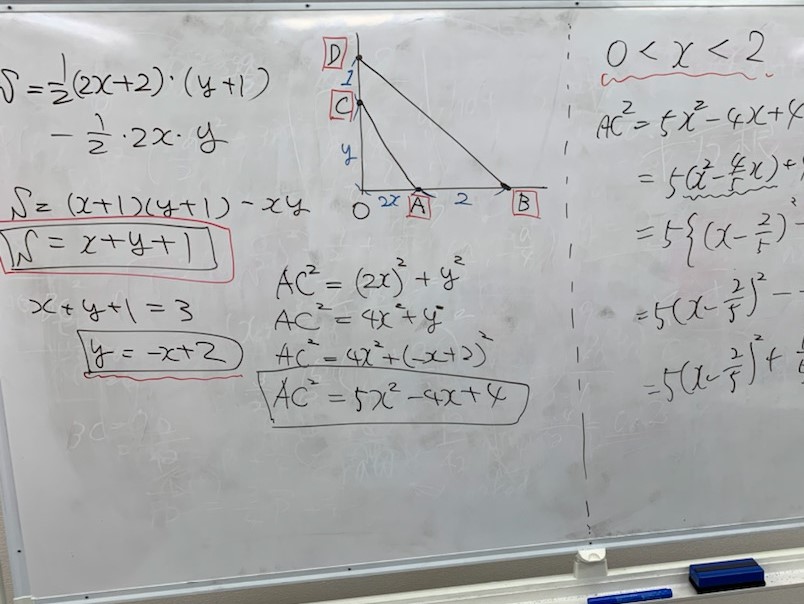 S = 1/2 (2x+2)・(y+1)
− 1/2・2x・y
S = (x+1)(y+1) − xy
S = x+y+1
x+y+1 = 3
y = −x+2
D
1
C
y
O 2x A 2 B
AC² = (2x)² + y²
AC² = 4x² + y²
AC² = 4x² + (−x+2)²
AC² = 5x² − 4x + 4
0 < x < 2
AC² = 5x² − 4x + 4
= 5(x² − 4/5 x) +
= 5{(x − 2/5)² −
= 5(x − 2/5)² −
= 5(x − 2/5)² +